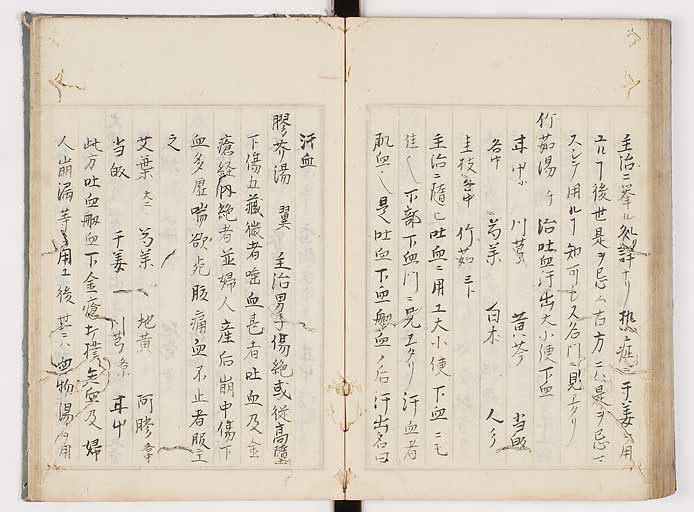 主治ニ挙ル処詳ナリ 熱症 干姜ヲ用
ユルヿ後世是ヲ忌ム古方ニハ是ヲ忌マ
スシテ用ル 知可 名門ニ見エタリ
竹茹湯 千 治吐血汗出大小便下血
甘中 川芎 黄芩 当皈
各中 芍薬 白朮 人
圭枝各中 竹茹三下
主治ニ隨ヒ吐血ニ用エ大小便下血ニモ
佳シ下部下血門ニ見エタリ汗血者
肌血也是吐血下血衂血ノ后汗出名曰
汗血
膠芥湯 翼 主治男子傷絶或従高墮
下傷五藏微者唾血甚者吐血及金
瘡経内絶者並婦人産后崩中傷下
血多虚喘欲死腹痛血不止者服主
之
艾葉 大 芍薬 地黄 阿膠 各中
当皈 干姜 川芎 甘
此方吐血衂血下金瘡打撲 血及婦
人崩漏等ヲ用エ後世ハ血物湯ヲ用